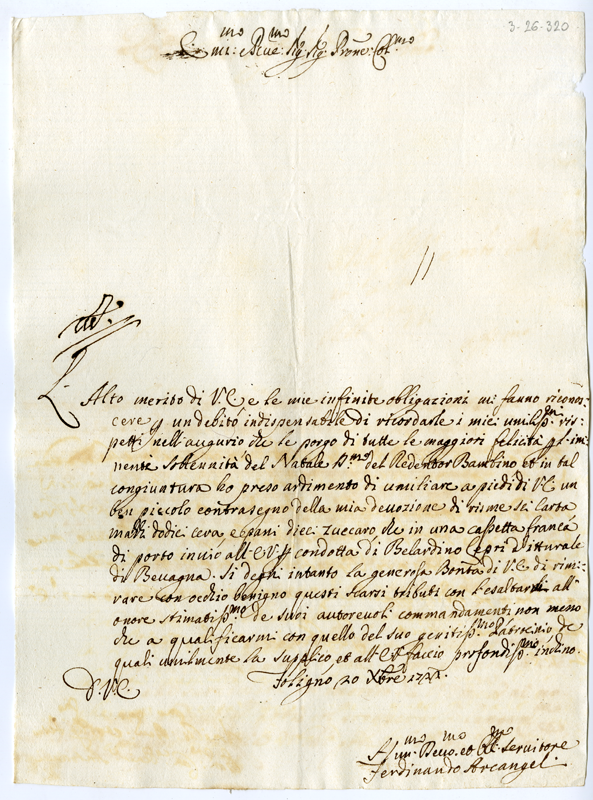 3-26-320
Emi: e Rve: Sig Sig Prone: Col:mo
L'Alto merito di V.E. e le mie infinite obligazioni mi fanno riconos-
cere p un debito indispensabile di ricordarle i miei umiliss:mi ris-
petti nell'augurio che le porgo di tutte le maggiori felicità p l'im-
nente sollennità del Natale S:mo del Redentor Bambino et in tal
congiuntura ho preso ardimento di umiliare a piedi di V.E. un
ben piccolo contrasegno della mia devozione di risme sei Carta
mazzi dodici cera e pani dieci zuccaro che in una cassetta franca
di porto invio all'E.V. p condotta di Belardino Vitturale
di Bevagna. Si degni intanto la generosa Bontà di V.E. di rimi-
rare con occhio benigno questi scarsi tributi con l'esaltarmi all'
onore stimatiss:mo de suoi autorevoli commandamenti non meno
che a qualificarmi con quello del suo gentiliss:mo Patrocinio de
quali umilmente la supplico, et all'E.V. faccio profondiss:mo inchino.
D. V. E. Foligno 20 Xbre
Servitore
Ferdinando Arcangeli